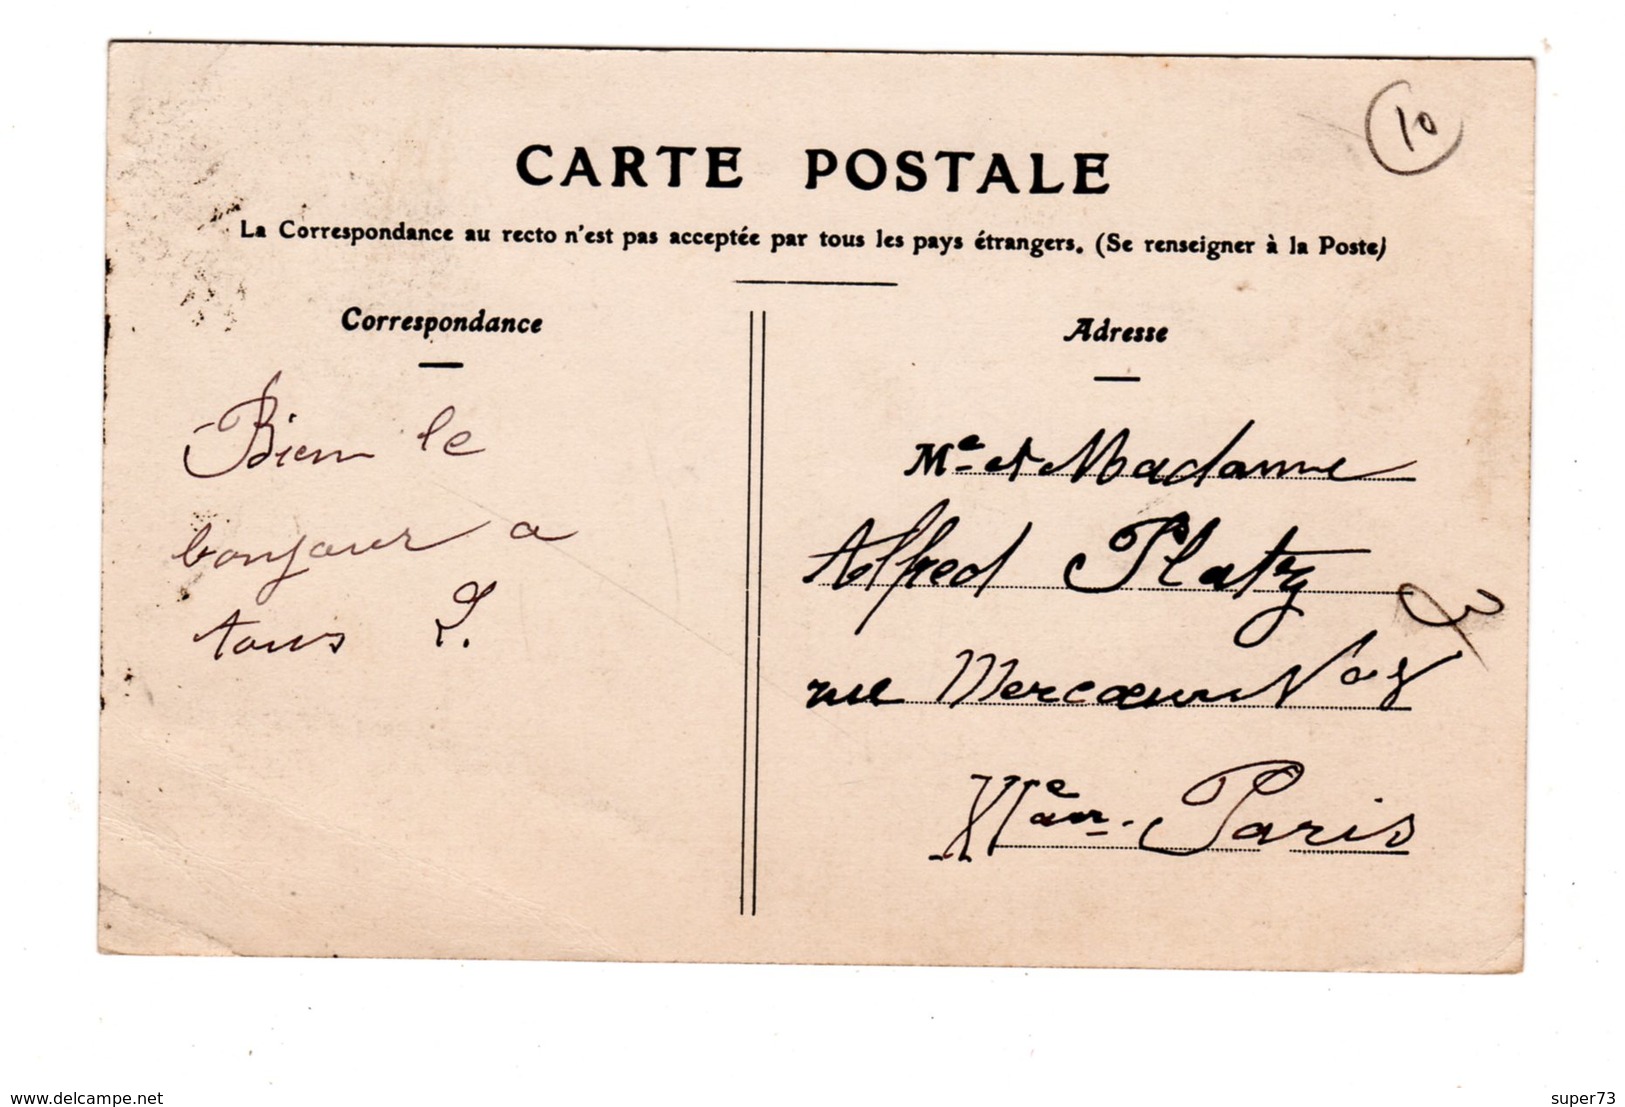 10
CARTE POSTALE
La Correspondance au recto n'est pas acceptée par tous les pays étrangers. (Se renseigner à la Poste)
Correspondance
Bien le
bonjour a
tous L.
Adresse
Me et Madame
Alfred Platzy
rue Mercœur No 8
XIeme Paris
www.delcampe.net
super73